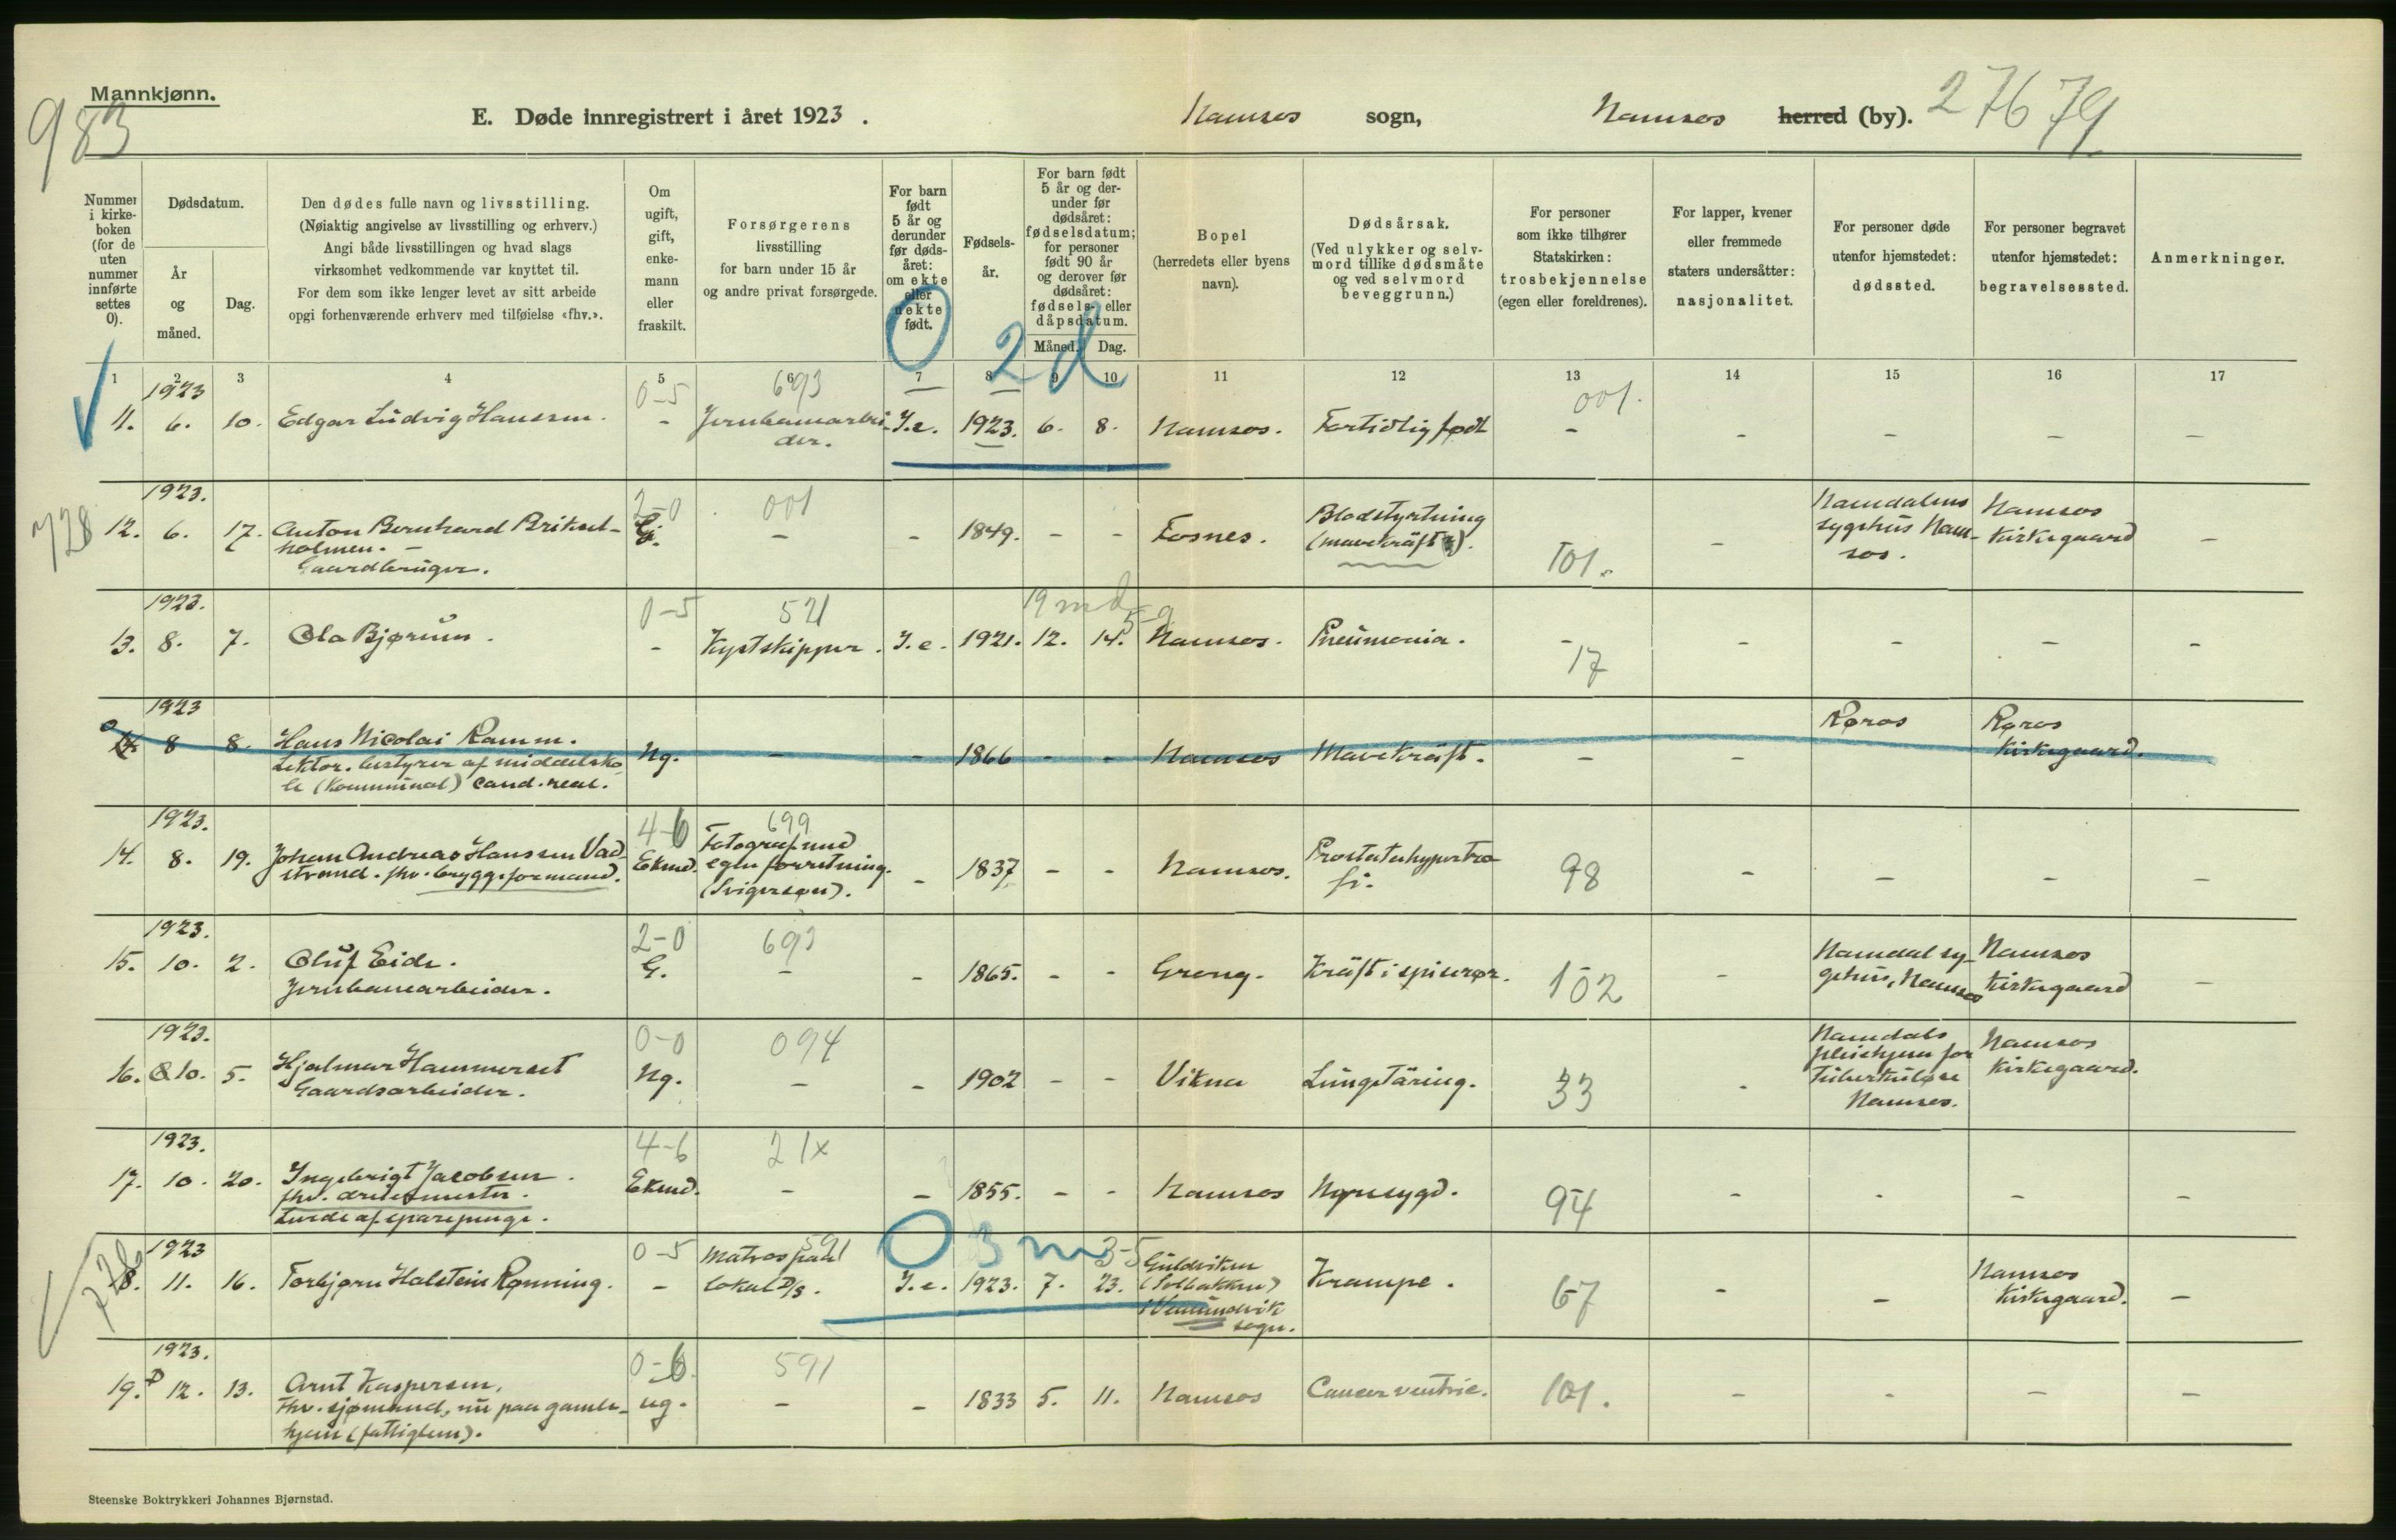 Mannkjønn.
983
E. Døde innregistrert i året 1923.
Namsos sogn,
Namsos herred (by). 27679
Nummer i kirke-boken (for de uten nummer innførte settes 0).
Dødsdatum.
År og måned.
Dag.
Den dødes fulle navn og livsstilling.
(Nøiaktig angivelse av livsstilling og erhverv.)
Angi både livsstillingen og hvad slags
virksomhet vedkommende var knyttet til.
For dem som ikke lenger levet av sitt arbeide
opgi forhenværende erhverv med tilføielse «fhv.».
Om ugift, gift, enke-mann eller fraskilt.
Forsørgerens
livsstilling
for barn under 15 år
og andre privat forsørgede.
For barn født 5 år og derunder før døds-året: om ekte eller uekte født.
Fødsels-år.
For barn født 5 år og der-under før dødsåret: fødselsdatum; for personer født 90 år og derover før dødsåret: fødsels- eller dåpsdatum.
Måned. Dag.
Bopel
(herredets eller byens
navn).
Dødsårsak.
(Ved ulykker og selv-
mord tillike dødsmåte
og ved selvmord
beveggrunn.)
For personer
som ikke tilhører
Statskirken:
trosbekjennelse
(egen eller foreldrenes).
For lapper, kvener
eller fremmede
staters undersåtter:
nasjonalitet.
For personer døde
utenfor hjemstedet:
dødssted.
For personer begravet
utenfor hjemstedet:
begravelsessted.
Anmerkninger.
0 2 d
1 2 3 4 5 6 7 8 9 10 11 12 13 14 15 16 17
1923 0-5 693 001.
11. 6. 10. Edgar Ludvig Hanssen. - Jernbanearbei- I.e. 1923. 6. 8. Namsos. Fortidlig født - - - - -
der.
1923. 2-0 001
728 12. 6. 17. Anton Bernhard Brikset- G. - - 1849. - - Fosnes. Blodstyrtning (mavekræft). 101. - Namdalens sygehus Nam- sos. Namsos Kirkegaard -
holmen. -
Gaardbruger.
1923. 0-5 521 19 md 5-9
13. 8. 7. Ola Bjørum. - Kystskipper. I.e. 1921. 12. 14. Namsos. Pneumonia. - 17 - - - -
1923
0 8 8. Hans Nicolai Ramm. Ng. - - 1866 - - Namsos Mavekræft. - - Røros Røros Kirkegaard.
Lektor. bestyrer af middelsko-
le (kommunal) cand. real.
1923. 4-6 699
14. 8. 19. Johan Andreas Hanssen Vad- Ekmd. Fotograf med - 1837 - - Namsos. Prostatahypertro- 98 - - - -
strand. fhv. bryggeformand. egen forretning. fi.
(Svigersøn).
1923. 2-0 693
15. 10. 2. Oluf Eide. G. - - 1865. - - Grong. Kræft i spiserør. 102 - Namdal sy- gehus, Namsos Namsos Kirkegaard -
Jernbanearbeider.
1923. 0-0 094
16. 10. 5. Hjalmar Hammerset Ng. - - 1902 - - Vikna Lungetæring. 33 - Namdals pleiehjem for Tuberkuløse Namsos. Namsos Kirkegaard.
Gaardsarbeider.
1923. 4-6 21x
17. 10. 20. Ingebrigt Jacobsen. Ekmd. - - 1855. - - Namsos Nyresygd. 94 - - - -
fhv.
Levede af sparepenge.
1923 0-5 591 0 3 m 3-5
18. 11. 16. Torbjørn Halstein Rønning. - Matros paa I.e. 1923. 7. 23. Guldviken (Solbakken) Vemundvik sogn. Krampe. 67 - - Namsos Kirkegaard. -
lokal D/S.
1923. 0-6 591
19. 12. 13. Arnt Kaspersen, ug. - - 1833 5. 11. Namsos Cancer ventric. 101. - - - -
Fhv. sjømand, nu paa gamle-
hjem (fattiglem).
Steenske Boktrykkeri Johannes Bjørnstad.